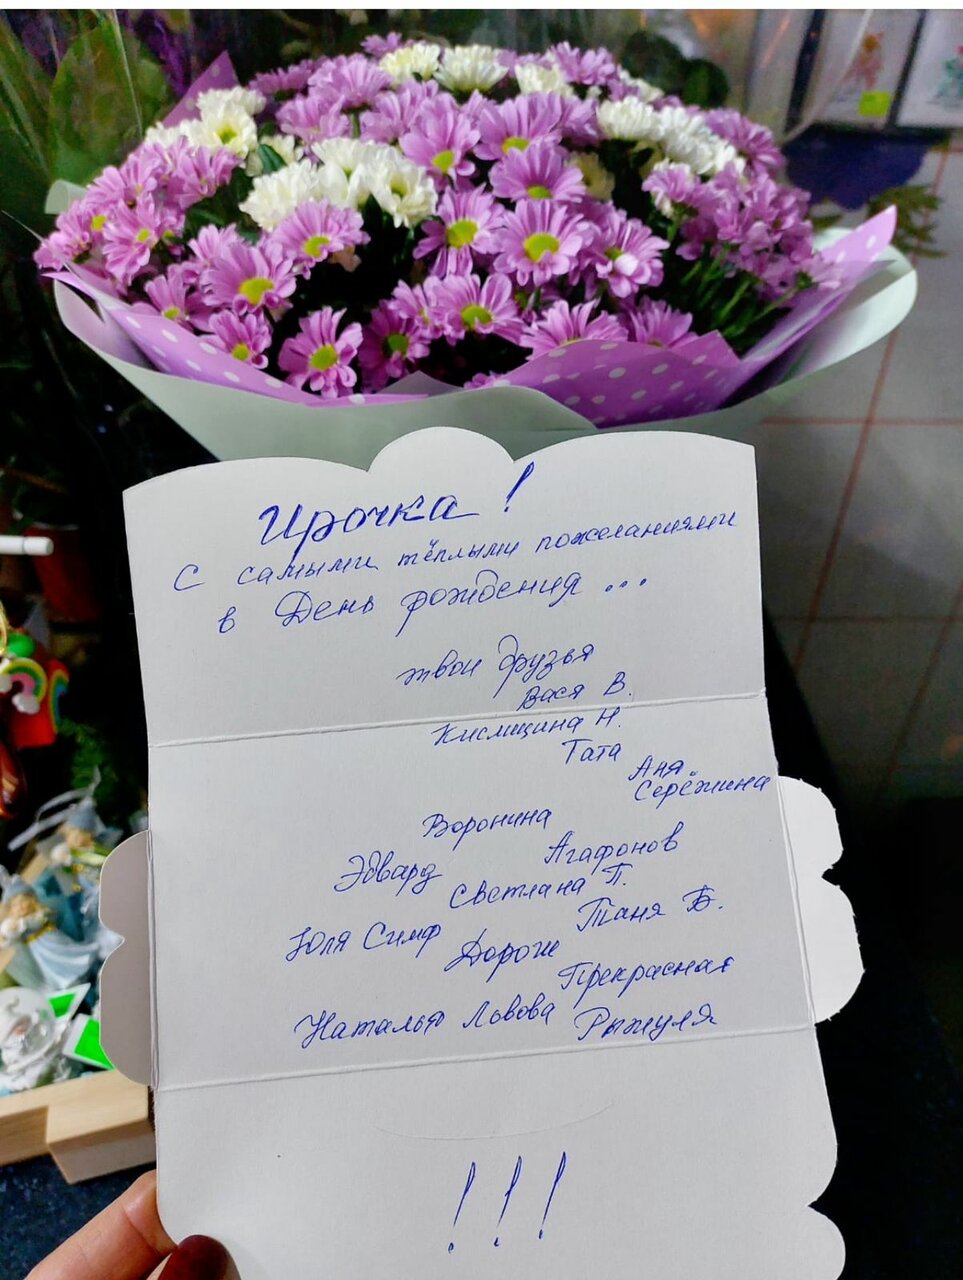 Ирочка!
С самыми тёплыми пожеланиями
в День рождения ...
твои друзья
Вася В.
Кисмицина Н.
Тата
Аня
Серёжина
Воронина
Агафонов
Эдвард
Светлана П.
Таня Б.
Юля Симф
Дороже
Прекрасная
Наталья Львова
Рыжуля
!!!